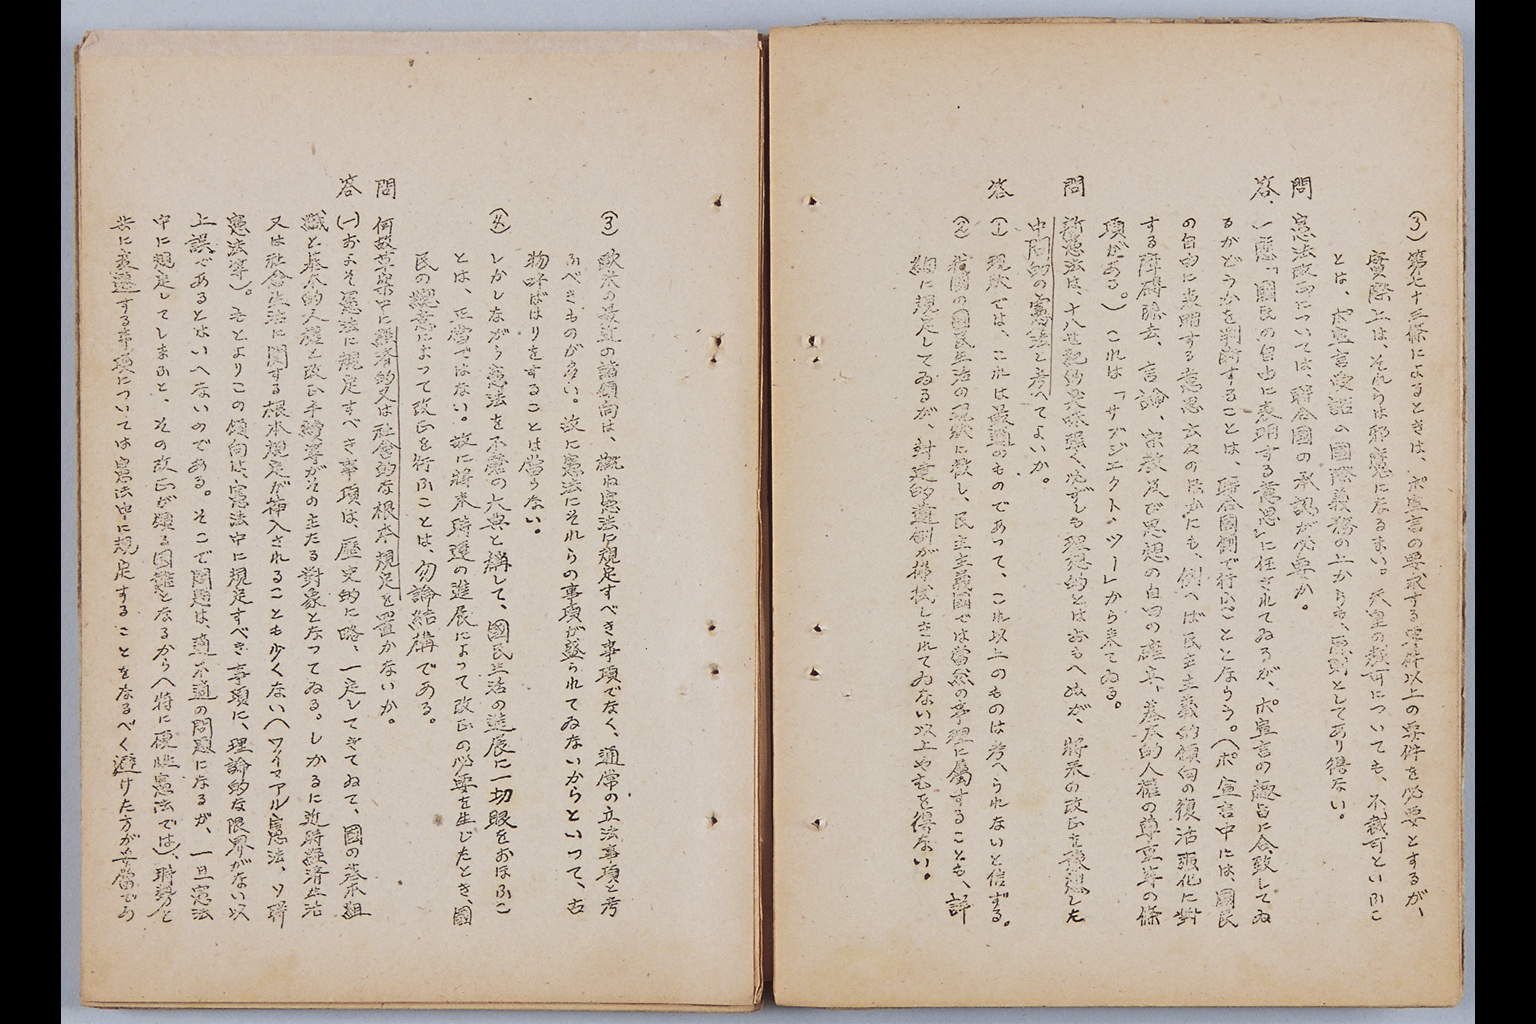 (3) 第七十三條によるときは、ポ宣言の要求する要件以上の要件を必要とするが、
實際上は、それらは邪魔になるまい。天皇の裁可についても、不裁可といふこ
とは、ポ宣言受諾の國際義務の上からも、原則としてあり得ない。
問 憲法改正については、聯合國の承認が必要か。
答、一應「國民の自由に表明する意思」に任されてゐるが、ポ宣言の趣旨に合致してゐ
るかどうかを判斷することは、聯合國側で行ふこととならう。(ポ宣言中には、國民
の自由に表明する意思云々の民かにも、例へば民主主義的傾向の復活強化に對
する障碍除去、言論、宗教及び思想の自由の確立、基本的人權の尊重等の條
項がある。)これは「サブジエクト・ツー」から來てゐる。
問 新憲法は、十八世紀的臭味强く、必ずしも理想的とはおもへぬが、將來の改正を豫想した
中間的の憲法と考へてよいか。
答 (1) 現狀では、これは最適のものであつて、これ以上のものは考へられないと信ずる。
(2) 我國の國民生活の現狀に徴し、民主主義國では當然の事理に屬することも、詳
細に規定してゐるが、封建的遺制が掃拭しきれてゐない以上やむを得ない。
(3) 歐米の最近の諸傾向は、概ね憲法に規定すべき事項でなく、通常の立法事項と考
ふべきものが多い。故に憲法にそれらの事項が盛られてゐないからといつて、古
物呼ばはりをすることは當らない。
(4) しかしながら憲法を不磨の大典と稱して、國民生活の進展に一切眼をおほふこ
とは、正當ではない。故に將來時運の進展によつて改正の必要を生じたとき、國
民の總意によつて改正を行ふことは、勿論結構である。
問 何故草案中に經濟的又は社會的な根本規定を置かないか。
答 (一)およそ憲法に規定すべき事項は、歷史的に略、一定してきてゐて、國の基本組
織と基本的人權と改正手續等がその主たる對象となつてゐる。しかるに近時經濟生活
又は社會生活に關する根本規定が揷入されることも少くない(ワイマアル憲法、ソ聯
憲法等)。もとよりこの傾向は、憲法中に規定すべき事項に、理論的な限界がない以
上誤であるとはいへないのである。そこで問題は、適不適の問題になるが、一旦憲法
中に規定してしまふと、その改正が頗る困難となるから(特に硬性憲法では)、時勢と
共に變遷する事項については憲法中に規定することをなるべく避けた方が妥當であ